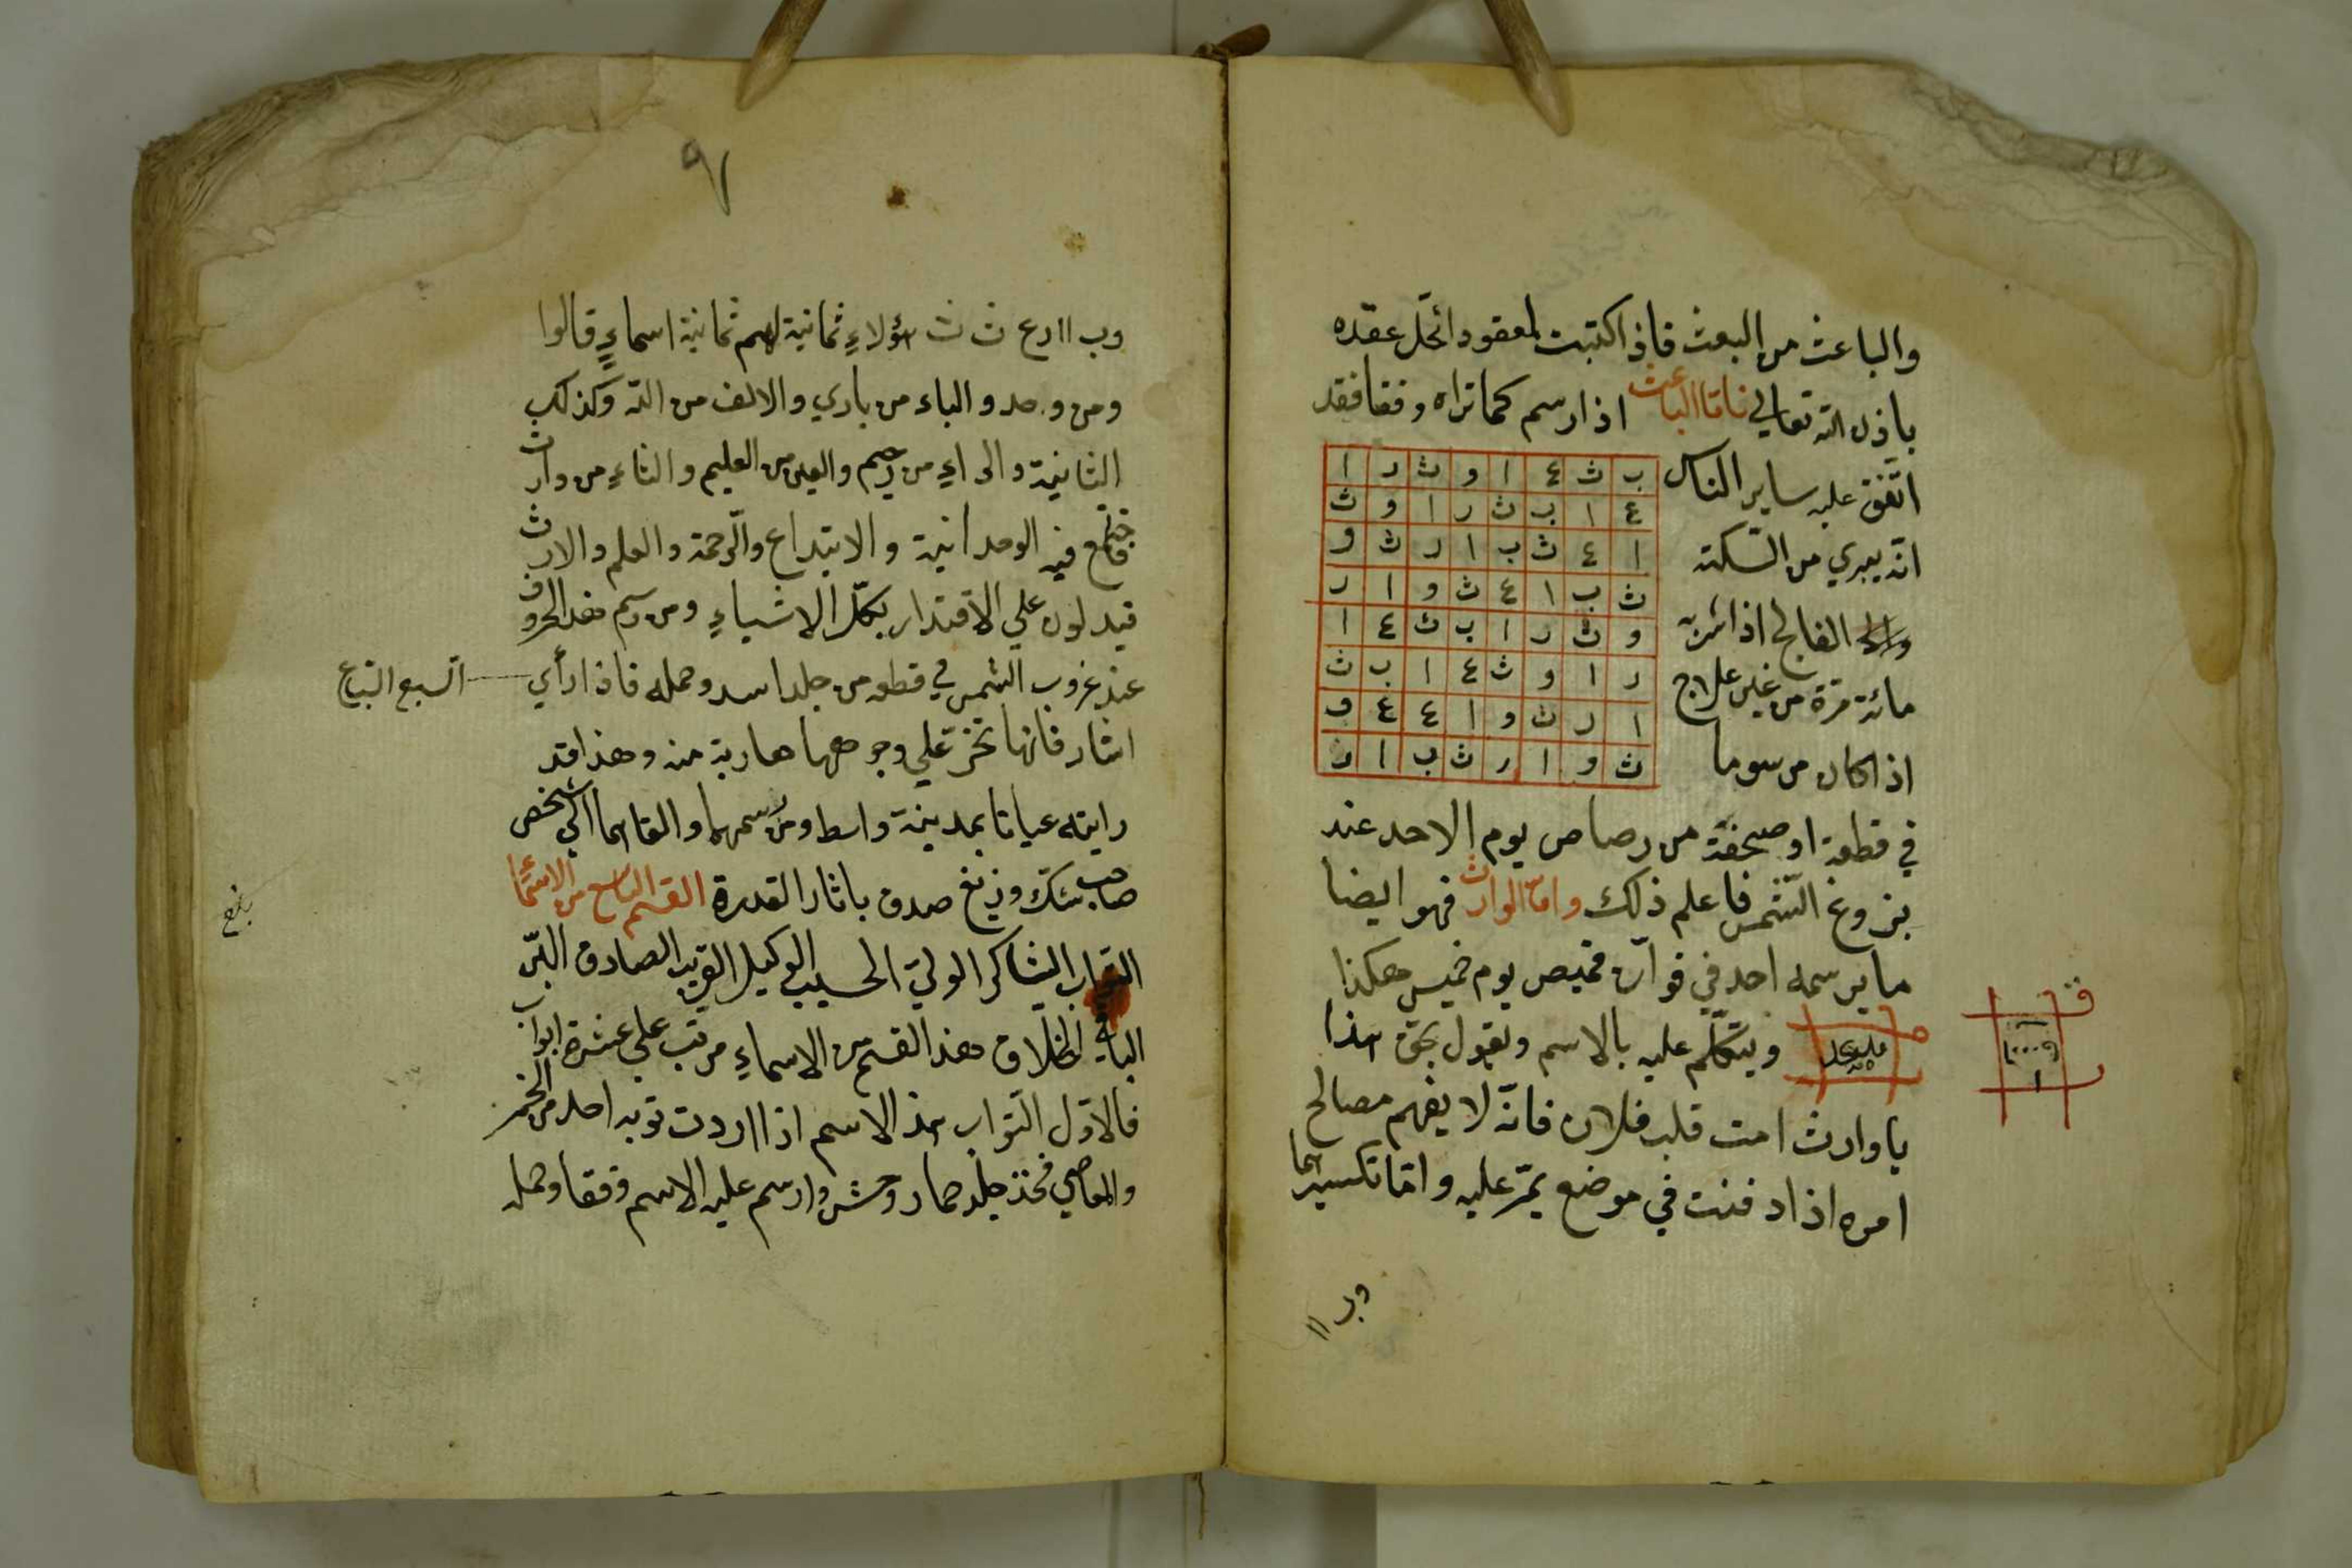 والباعث من البعث فاذا كتبت لمعقود انحل عقده
باذن الله تعالى فاما الباعث اذا رسم كما تراه وفقا فقد
اتفق عليه ساير الناس
انه يبري من السكتة
الفالج اذا شربه
مائة مرة من غير علاج
اذا كان مرسوما
ب ث ع ا و ث ر ا
ع ا ب ث ر ا و ث
ا ع ث ب ا ر ث و
ث ب ا ع ث و ا ر
و ث ر ا ب ث ع ا
ر ا و ث ع ا ب ث
ا ر ث و ا ع ع و
ث و ا ر ث ب ا ر
في قطعة او صحفة من رصاص يوم الاحد عند
بزوغ الشمس فاعلم ذلك واما الوارث فهو ايضا
ما يرسمه احد في قوارة قميص يوم خميس هكذا
ويتكلم عليه بالاسم ويقول بحق هذا
يا وارث امت قلب فلان فانه لا يفهم مصالح
امره اذا دفنت في موضع يمر عليه واما تكسيرهما
وب اا
٩٧
وب اا رع ث ث هؤلاء ثمانية لهم ثمانية اسماء قالوا
ومن وحد والباء من باري والالف من الله وكذلك
الثانية والراء من رحيم والعين من العليم والثاء من وارث
فاجتمع فيه الوحدانية والابتداع والرحمة والعلم والارث
فيدلون على الاقتدار بكل الاشياء ومن رسم هذه الحروف
عند غروب الشمس في قطعه من جلد اسد وحمله فاذا رأي
السبع السباع
اشار فانها تخر على وجوهها هاربة منه وهذا قد
رايته عيانا بمدينة واسط ومن رسمهما والقاهما الى شخص
صاحب شك وزيغ صدق باثار القدرة القسم التاسع من الاسماء
بلغ
التواب الشاكر الولي الحسيب الوكيل القريب الصادق البر
الباقي الخلاق هذا القسم من الاسماء مرتب على عشرة ابواب
فالاول التواب هذا الاسم اذا اردت توبه احد من الخمر
والمعاصي فخذ جلد حمار وحش وارسم عليه الاسم وفقا وحمله